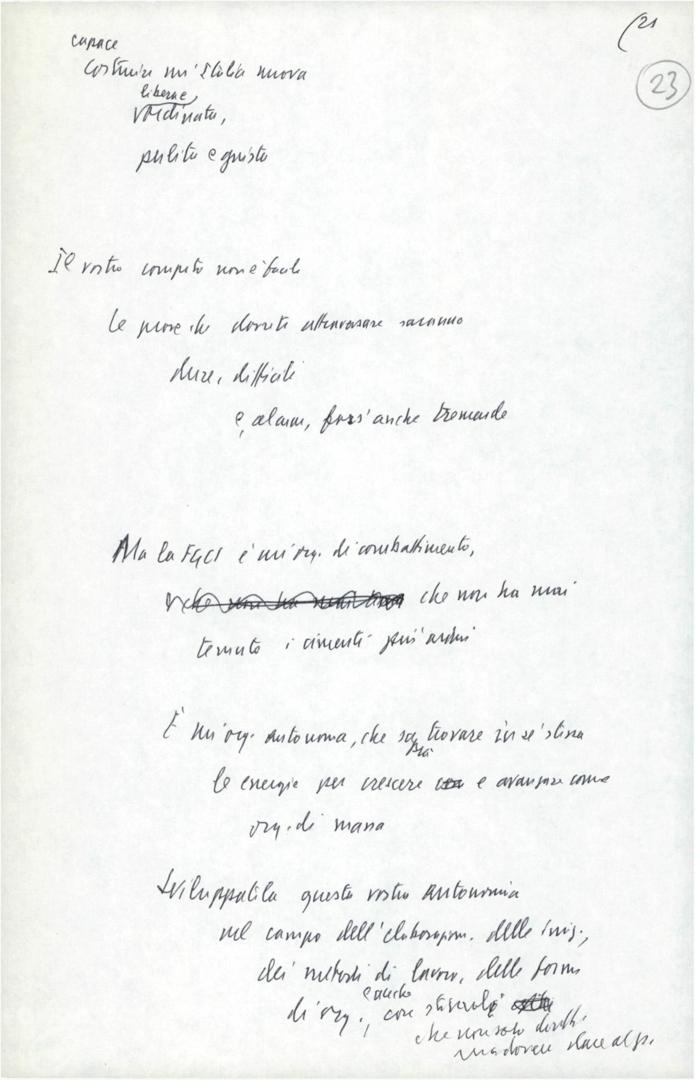 (21
23
capace
costruire un'Italia nuova
libera,
ordinata,
pulita e giusta
Il vostro compito non è facile
le prove che dovete attraversare saranno
dure, difficili
e, alcune, fors'anche tremende
Ma la FGCI è un'org. di combattimento,
che non ha mai che non ha mai
temuto i cimenti più ardui
È un'org. autonoma, che sa trovare in se' stessa
le energie per crescere e avanzare come
org. di massa
Sviluppatela questa vostra autonomia
nel campo dell'elaborazion. delle iniz.,
dei metodi di lavoro, delle forme
e anche
di org., con
che non solo
ma dovete dare al p.